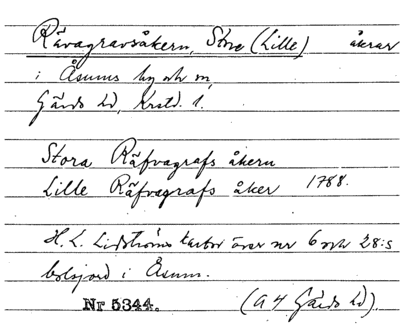 Rävagravsåkern, Stora (Lille) åkrar
i Åsums by och sn,
Gärds hd, Krstd. l.
Stora Räfvagrafs åkern
Lille Räfvagrafs åker 1788.
H. L. Lidströms kartor över nr 6 och 28:s
bolsjord i Åsum.
Nr 5344. (A 4 Gärds hd).